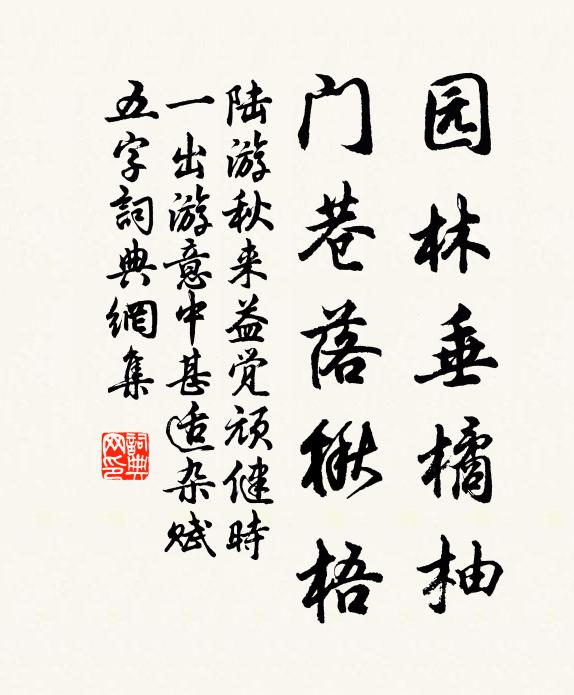 园林垂橘柚
门巷落楸梧
陆游秋来益觉顽健时
一出游意中甚适杂赋
五字詞典網集
詞典
网印